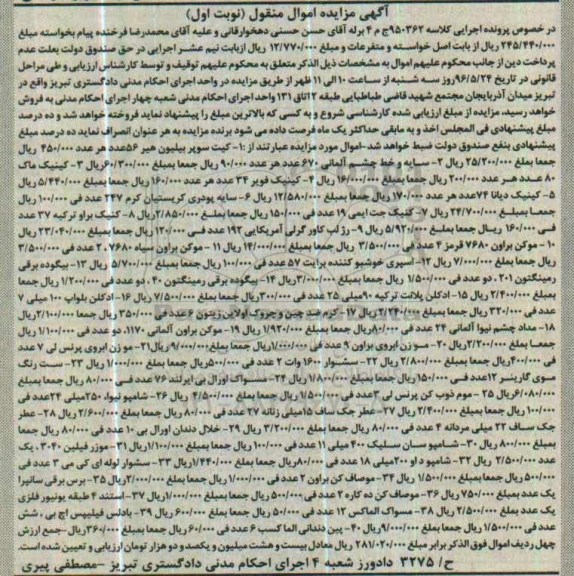 آگهی مزایده اموال منقول (نوبت اول)
در خصوص پرونده اجرایی کلاسه ۹۵۰۳۶۲ج م ۴ برله آقای حسن حسنی دهخوارقانی و علیه آقای محمدرضا فرخنده پیام بخواسته مبلغ
۲۴۵/۴۴۰/۰۰۰ ریال از بابت اصل خواسته و متفرعات و مبلغ ۱۲/۷۷۰/۰۰۰ ریال بابت نیم عشر اجرایی در حق صندوق دولت بعلت عدم
پرداخت دین از جانب محکوم علیهم اموال به مشخصات ذیل الذکر متعلق به محکوم علیهم توقیف و توسط کارشناس ارزیابی و طی مراحل
قانونی در تاریخ ۹۶/۵/۲۴ روز سه شنبه از ساعت ۱۰ الی ۱۱ ظهر از طریق مزایده در واحد اجرای احکام مدنی دادگستری تبریز واقع در
تبریز میدان آذربایجان مجتمع شهید قاضی طباطبایی طبقه ۲ اتاق ۱۳۱ واحد اجرای احکام مدنی شعبه چهار اجرای احکام مدنی به فروش
خواهد رسید، مزایده از مبلغ ارزیابی شده کارشناسی شروع و به کسی که بالاترین مبلغ را پیشنهاد نماید فروخته خواهد شد و ده درصد
مبلغ پیشنهادی فی المجلس اخذ و به مابقی حداکثر یک ماه فرصت داده می شود برنده مزایده به هر عنوان انصراف نماید ده درصد مبلغ
پیشنهادی بنفع صندوق دولت ضبط خواهد شد-اموال مورد مزایده عبارتند از :۱- کیت سوپر بیلیون هیر ۵۶عدد هر عدد ۴۵۰/۰۰۰ ریال
جمعا بمبلغ ۲۵/۲۰۰/۰۰۰ ریال ۲- سایه و خط چشم آلمانی ۶۷۰ عدد هر عدد ۹۰/۰۰۰ ریال جمعا بمبلغ ۶۰/۳۰۰/۰۰۰ریال ۳- کینیک ماک
۸۰ عدد هر عدد ۲۰۰/۰۰۰ ریال جمعا بمبلغ ۱۶/۰۰۰/۰۰۰ ریال ۴- کینیک فویر ۳۴ عدد هر عدد ۱۶۰/۰۰۰ ریال جمعا بمبلغ ۵/۴۴۰/۰۰۰ ریال
۵- کینیک دیانا ۷۴عدد هر عدد ۱۷۰/۰۰۰ ریال جمعا بمبلغ ۱۲/۵۸۰/۰۰۰ ریال ۶- سایه پودری کریستیان کرم ۲۴۷ عدد فی ۱۰۰/۰۰۰ ریال
جمعا بمبلغ ۲۴/۷۰۰/۰۰۰ ریال ۷- کینیک جت ایمی ۱۹ عدد فی ۱۵۰/۰۰۰ ریال جمعا بمبلغ ۲/۸۵۰/۰۰۰ریال ۸- کنیک براو ترکیه ۳۷ عدد
فی ۱۶۰/۰۰۰ ریال جمعا بمبلغ ۵/۹۲۰/۰۰۰ ریال ۹- رژ لب کاور گرلی آمریکایی ۱۹۲ عدد فی ۱۲۰/۰۰۰ ریال جمعا بمبلغ ۲۳/۰۴۰/۰۰۰ ریال
۱۰- موکن براون ۷۶۸۰ قرمز ۴ عدد فی ۳/۵۰۰/۰۰۰ ریال جمعا بمبلغ ۱۴/۰۰۰/۰۰۰ ریال ۱۱ - موکن براون سیاه ۷۶۸۰، ۲ عدد فی ۳/۵۰۰/۰۰۰
ریال جمعا بمبلغ ۷/۰۰۰/۰۰۰ ریال ۱۲- اسپری خوشبو کننده برایت ۵۷ عدد فی ۱۰۰/۰۰۰ ریال جمعا بمبلغ ۵/۷۰۰/۰۰۰ ریال ۱۳- بیگوده برقی
رمینگتون ۲۰۱، دو عدد فی ۱/۵۰۰/۰۰۰ ریال جمعا بمبلغ ۳/۰۰۰/۰۰۰ریال ۱۴- بیگوده برقی رمینگتون ۴۰، دو عدد فی ۱/۲۰۰/۰۰۰ ریال جمعا
بمبلغ ۲/۴۰۰/۰۰۰ ریال ۱۵- ادکلن پلانت ترکیه ۹۰میلی ۲۵ عدد فی ۳۰۰/۰۰۰ریال جمعا بمبلغ ۷/۵۰۰/۰۰۰ ریال ۱۶- ادکلن بلواب ۱۰۰ میلی ۷
عدد فی ۳۲۰/۰۰۰ ریال جمعا بمبلغ ۲/۲۴۰/۰۰۰ ریال ۱۷- کرم ضد چین و چروک اولاین زیتون ۶ عدد فی ۳۵۰/۰۰۰ ریال جمعا ۲/۱۰۰/۰۰۰ریال
۱۸- مداد چشم نیوا آلمانی ۲۴ عدد فی ۸۰/۰۰۰ریال جمعا بمبلغ ۱/۹۲۰/۰۰۰ ریال ۱۹- موکن براون آلمانی ۱۱۷۰، دو عدد فی ۱/۱۰۰/۰۰۰ ریال
جمعا بمبلغ ۲/۲۰۰/۰۰۰ ریال ۲۰- موزن ابروی براون ۹ عدد فی ۱/۰۰۰/۰۰۰ریال جمعا بمبلغ ۹/۰۰۰/۰۰۰ ریال ۲۱-موزن ابروی پرنس لی ۷ عدد
فی ۴۰۰/۰۰۰ریال جمعا بمبلغ ۲/۸۰۰/۰۰۰ ریال ۲۲- سشوار ۱۶۰۰ وات ۲ عدد فی ۵۰۰/۰۰۰ریال جمعا بمبلغ ۱/۰۰۰/۰۰۰ ریال ۲۳- ست رنگ
موی گارینسر ۱۲عدد فی ۱۵۰/۰۰۰ریال جمعا بمبلغ ۱/۸۰۰/۰۰۰ ریال ۲۴- مسواک اورال بی ایرلند ۷۶ عدد فی ۸۰/۰۰۰ ریال جمعا بمبلغ
۶/۰۸۰/۰۰۰ریال ۲۵- موم ذوب کن پرنس لی ۳عدد فی ۱/۵۰۰/۰۰۰ ریال جمعا بمبلغ ۴/۵۰۰/۰۰۰ ریال ۲۶- شامپو نیوا، ۲۵۰میلی ۲۴عدد فی
۱۰۰/۰۰۰ ریال جمعا بمبلغ ۲/۴۰۰/۰۰۰ ریال ۲۷- عطر جک ساف ۱۵میلی زنانه ۲۷ عدد فی ۸۰/۰۰۰ ریال جمعا بمبلغ ۲/۶۰۰/۰۰۰ ریال ۲۸- عطر
جک ساف ۲۲ میلی مردانه ۴ عدد فی ۸۰/۰۰۰ ریال جمعا بمبلغ ۳/۲۰۰/۰۰۰ ریال ۲۹- خلال دندان اورال بی ۱۰ عدد فی ۸۰/۰۰۰ ریال جمعا
بمبلغ ۸۰۰/۰۰۰ ریال ۳۰- شامپو سان سلیک ۴۰۰ میلی ۱۱ عدد فی ۱۰۰/۰۰۰ ریال جمعا بمبلغ ۱/۱۰۰/۰۰۰ریال ۳۱- موزر فیلین ۳۰۴۰، یک
عدد ۲/۵۰۰/۰۰۰ ریال ۳۲- شامپو داو ۲۰۰میلی ۱۸ عدد فی ۸۰/۰۰۰ریال جمعا بمبلغ ۱/۴۴۰/۰۰۰ریال ۳۳- سشوار لوله ای کی می ۳ عدد فی
۵۰۰/۰۰۰ریال جمعا بمبلغ ۱/۵۰۰/۰۰۰ ریال ۳۴- موصاف کن براون ۲ عدد فی ۱/۰۰۰/۰۰۰ ریال جمعا بمبلغ ۲/۰۰۰/۰۰۰ریال ۳۵- برس برقی سانیرا
یک عدد بمبلغ ۷۵۰/۰۰۰ ریال ۳۶- موصاف کن ده کاره ۲ عدد فی ۵۰۰/۰۰۰ ریال جمعا بمبلغ ۱/۰۰۰/۰۰۰ریال ۳۷- استند ۴ طبقه یونیور فلزی
یک عدد بمبلغ ۲/۵۰۰/۰۰۰ ریال ۳۸- مسواک الماکس ۱۲ عدد فی ۵۰/۰۰۰ ریال جمعا بمبلغ ۶۰۰/۰۰۰ ریال ۳۹- بادلس فیلیپس اچ بی، شش
عدد فی ۱/۵۰۰/۰۰۰ ریال جمعا بمبلغ ۹/۰۰۰/۰۰۰ریال ۴۰- بین دندانی الماکسب ۶ عدد فی ۶۰/۰۰۰ ریال جمعا بمبلغ ۳۶۰/۰۰۰ریال-جمع ارزش
چهل ردیف اموال فوق الذکر برابر مبلغ ۲۸۱/۰۲۰/۰۰۰ ریال معادل بیست و هشت میلیون و یکصد و دو هزار تومان ارزیابی و تعیین شده است.
ح/ ۳۲۷۵ دادورز شعبه ۴ اجرای احکام مدنی دادگستری تبریز -مصطفی پیری